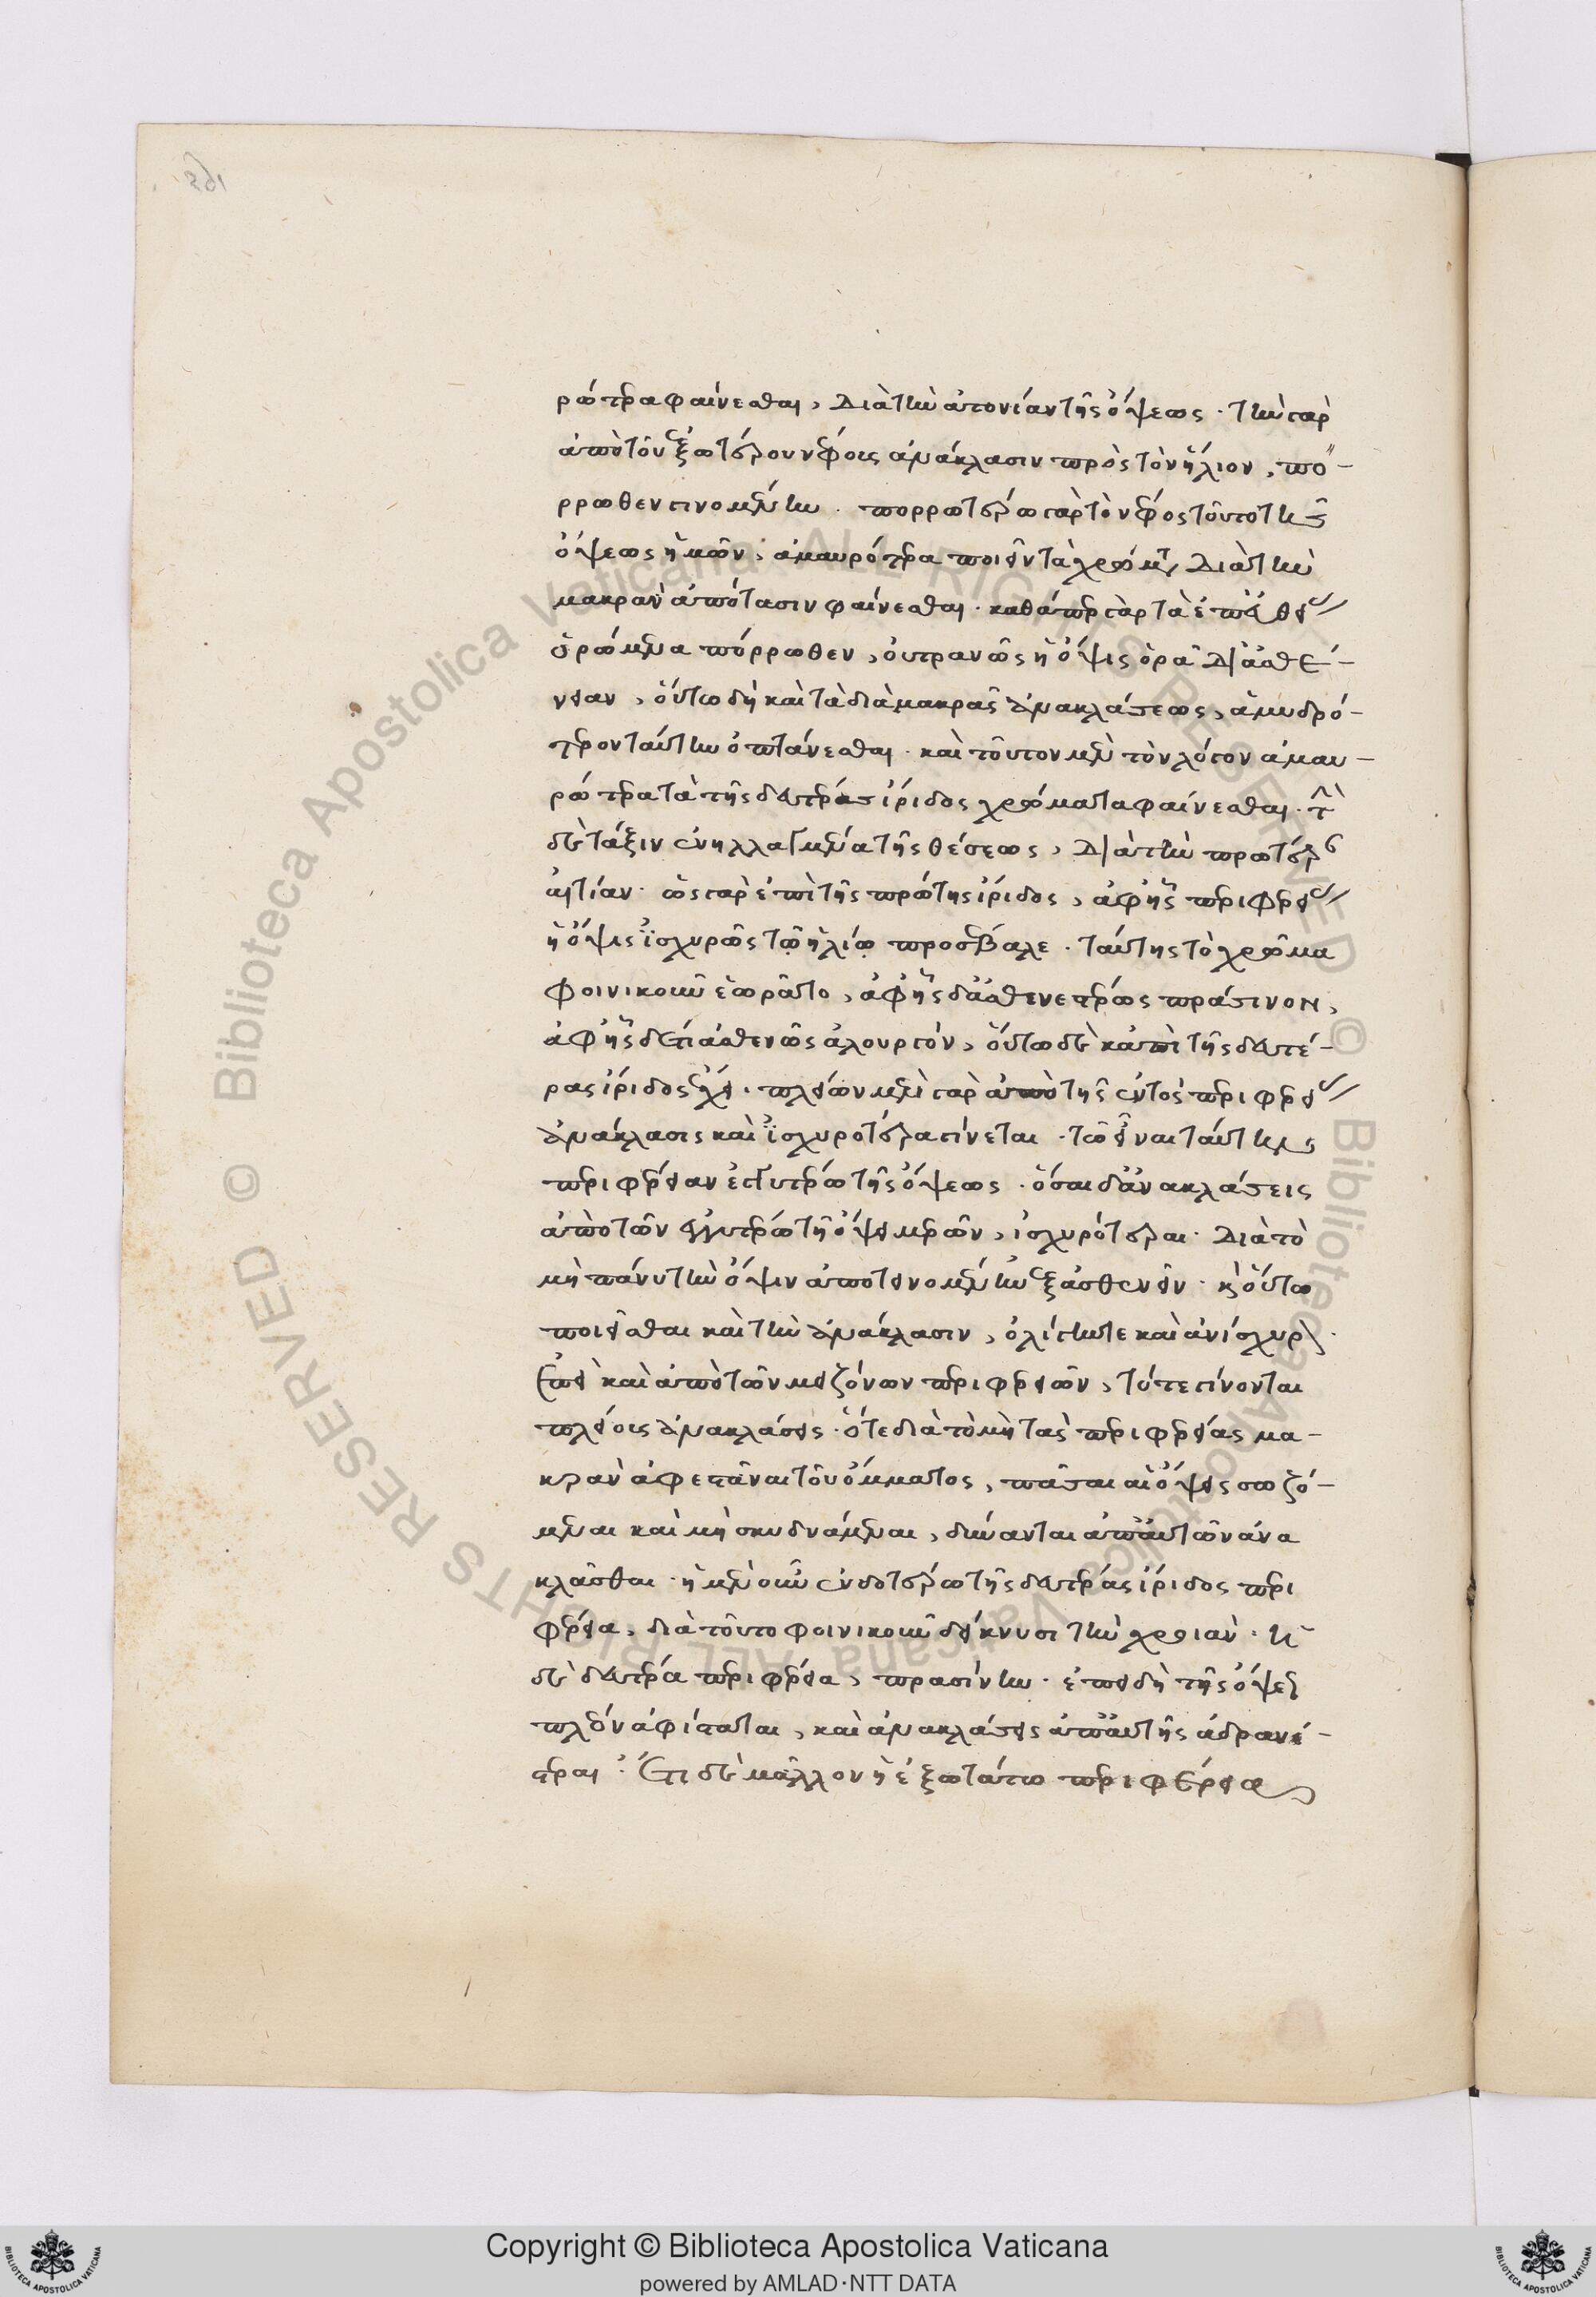 ρώτερα φαίνεσθαι, διὰ τὴν ἀτονίαν τῆς ὄψεως. τὴν γὰρ
ἀπὸ τοῦ ἐξωτέρου νέφους ἀνάκλασιν πρὸς τὸν ἥλιον, πό-
ρρωθεν γινομένην. πορρωτέρω γὰρ τὸ νέφος τοῦτο τῆς
ὄψεως ἡμῶν, ἀμαυρότερα ποιεῖν τὰ χρώματα διὰ τὴν
μακρὰν ἀπότασιν φαίνεσθαι. καθάπερ γὰρ τὰ ἐπ' εὐθείας
ὁρώμενα πόρρωθεν, οὐ τρανῶς ἡ ὄψις ὁρᾷ δι' ἀσθέ-
νειαν, οὕτω δὴ καὶ τὰ διὰ μακρᾶς ἀνακλάσεως, ἀμυδρό-
τερον ταύτην ὀπτάνεσθαι. καὶ τοῦτον μὲν τὸν λόγον ἀμαυ-
ρώτερα τὰ τῆς δευτέρας ἴριδος χρώματα φαίνεσθαι. τὴν
δὲ τάξιν ἐνηλλαγμένα τῆς θέσεως, διὰ τὴν προτέραν
αἰτίαν. ὡς γὰρ ἐπὶ τῆς πρώτης ἴριδος, ἀφ' ἧς περιφερείας
ἡ ὄψις ἰσχυρῶς τῷ ἡλίῳ προσβάλει. ταύτης τὸ χρῶμα
φοινικοῦν ἑωρᾶτο, ἀφ' ἧς δ' ἀσθενεστέρως πράσινον,
ἀφ' ἧς δ' ἔτι ἀσθενῶς ἁλουργόν, οὕτω δὲ κἀπὶ τῆς δευτέ-
ρας ἴριδος ἔχει. πλείων μὲν γὰρ ἀπὸ τῆς ἐντὸς περιφερείας
ἀνάκλασις καὶ ἰσχυροτέρα γίνεται. τῷ εἶναι ταύτην
περιφέρειαν ἐγγυτέρω τῆς ὄψεως. ὅσαι δ' ἀνακλάσεις
ἀπὸ τῶν ἐγγυτέρω τῇ ὄψει μερῶν, ἰσχυρότεραι. διὰ τὸ
μὴ πάνυ τὴν ὄψιν ἀποτεινομένην ἐξασθενεῖν. καὶ οὕτω
ποιεῖσθαι καὶ τὴν ἀνάκλασιν, ὀλίγην τε καὶ ἀνίσχυρον.
ἐπεὶ καὶ ἀπὸ τῶν μειζόνων περιφερειῶν, τότε γίνονται
πλείους ἀνακλάσεις. ὅτε διὰ τὸ μὴ τὰς περιφερείας μα-
κρὰν ἀφεστάναι τοῦ ὄμματος, πᾶσαι αἱ ὄψεις σωζό-
μεναι καὶ μὴ σκιδνάμεναι, δύνανται ἀπ' αὐτῶν ἀνα
κλᾶσθαι. ἡ μὲν οὖν ἐνδοτέρω τῆς δευτέρας ἴριδος περι
φέρεια, διὰ τοῦτο φοινικοῦν δείκνυσι τὴν χροιάν. ἡ
δὲ δευτέρα περιφέρεια, πρασίνην. ἐπειδὴ τῆς ὄψεως
πλεῖον ἀφίσταται, καὶ ἀνακλάσεις ἀπ' αὐτῆς ἀδρανέ-
στεραι. ἔτι δὲ μᾶλλον ἡ ἐξωτάτω περιφέρεια
Copyright © Biblioteca Apostolica Vaticana
powered by AMLAD·NTT DATA